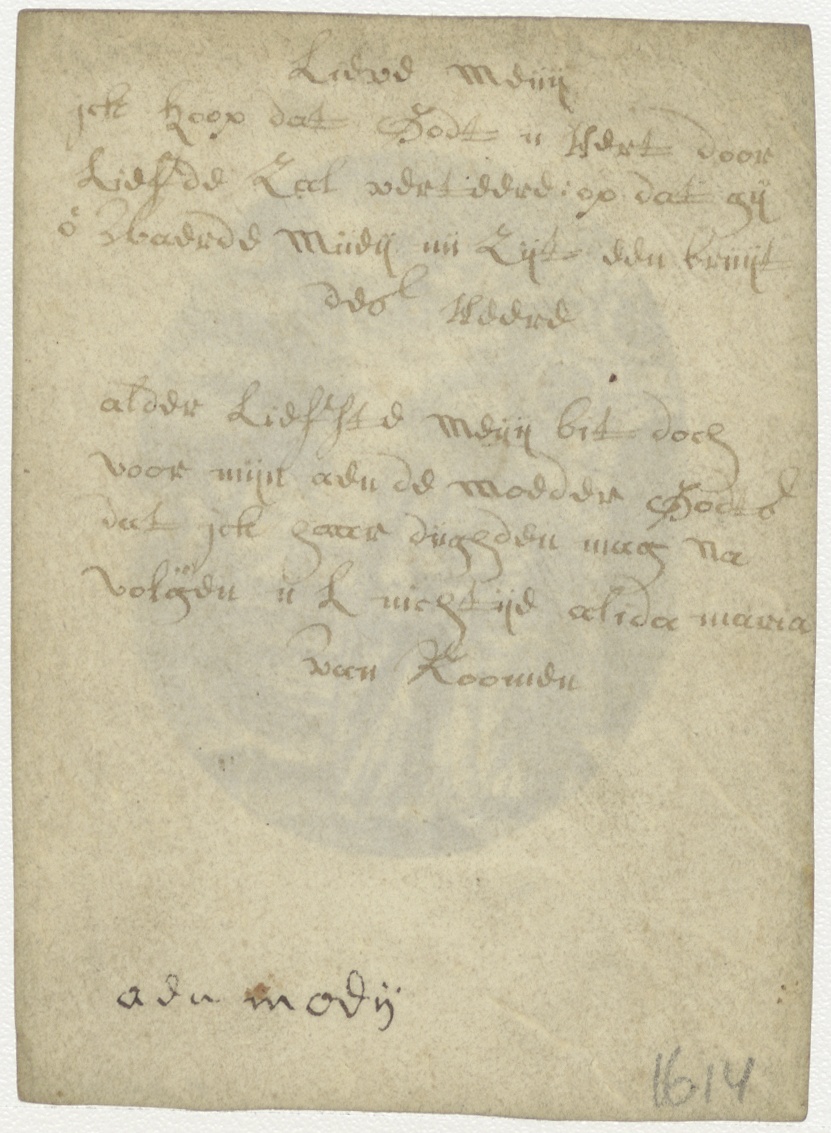 Lieve Meuij
jck hoop dat Godt u Hert door
Liefde Zal verteere: op dat gij
ô Waerde Mueij nu Zijt een bruijt
des Heere
alder Liefste Meuij bit doch
voor mijn aen de moeder Godts
dat jck haar dughden mag na
volgen u L nichtije alida maria
van Roomen
aen moeij
1614